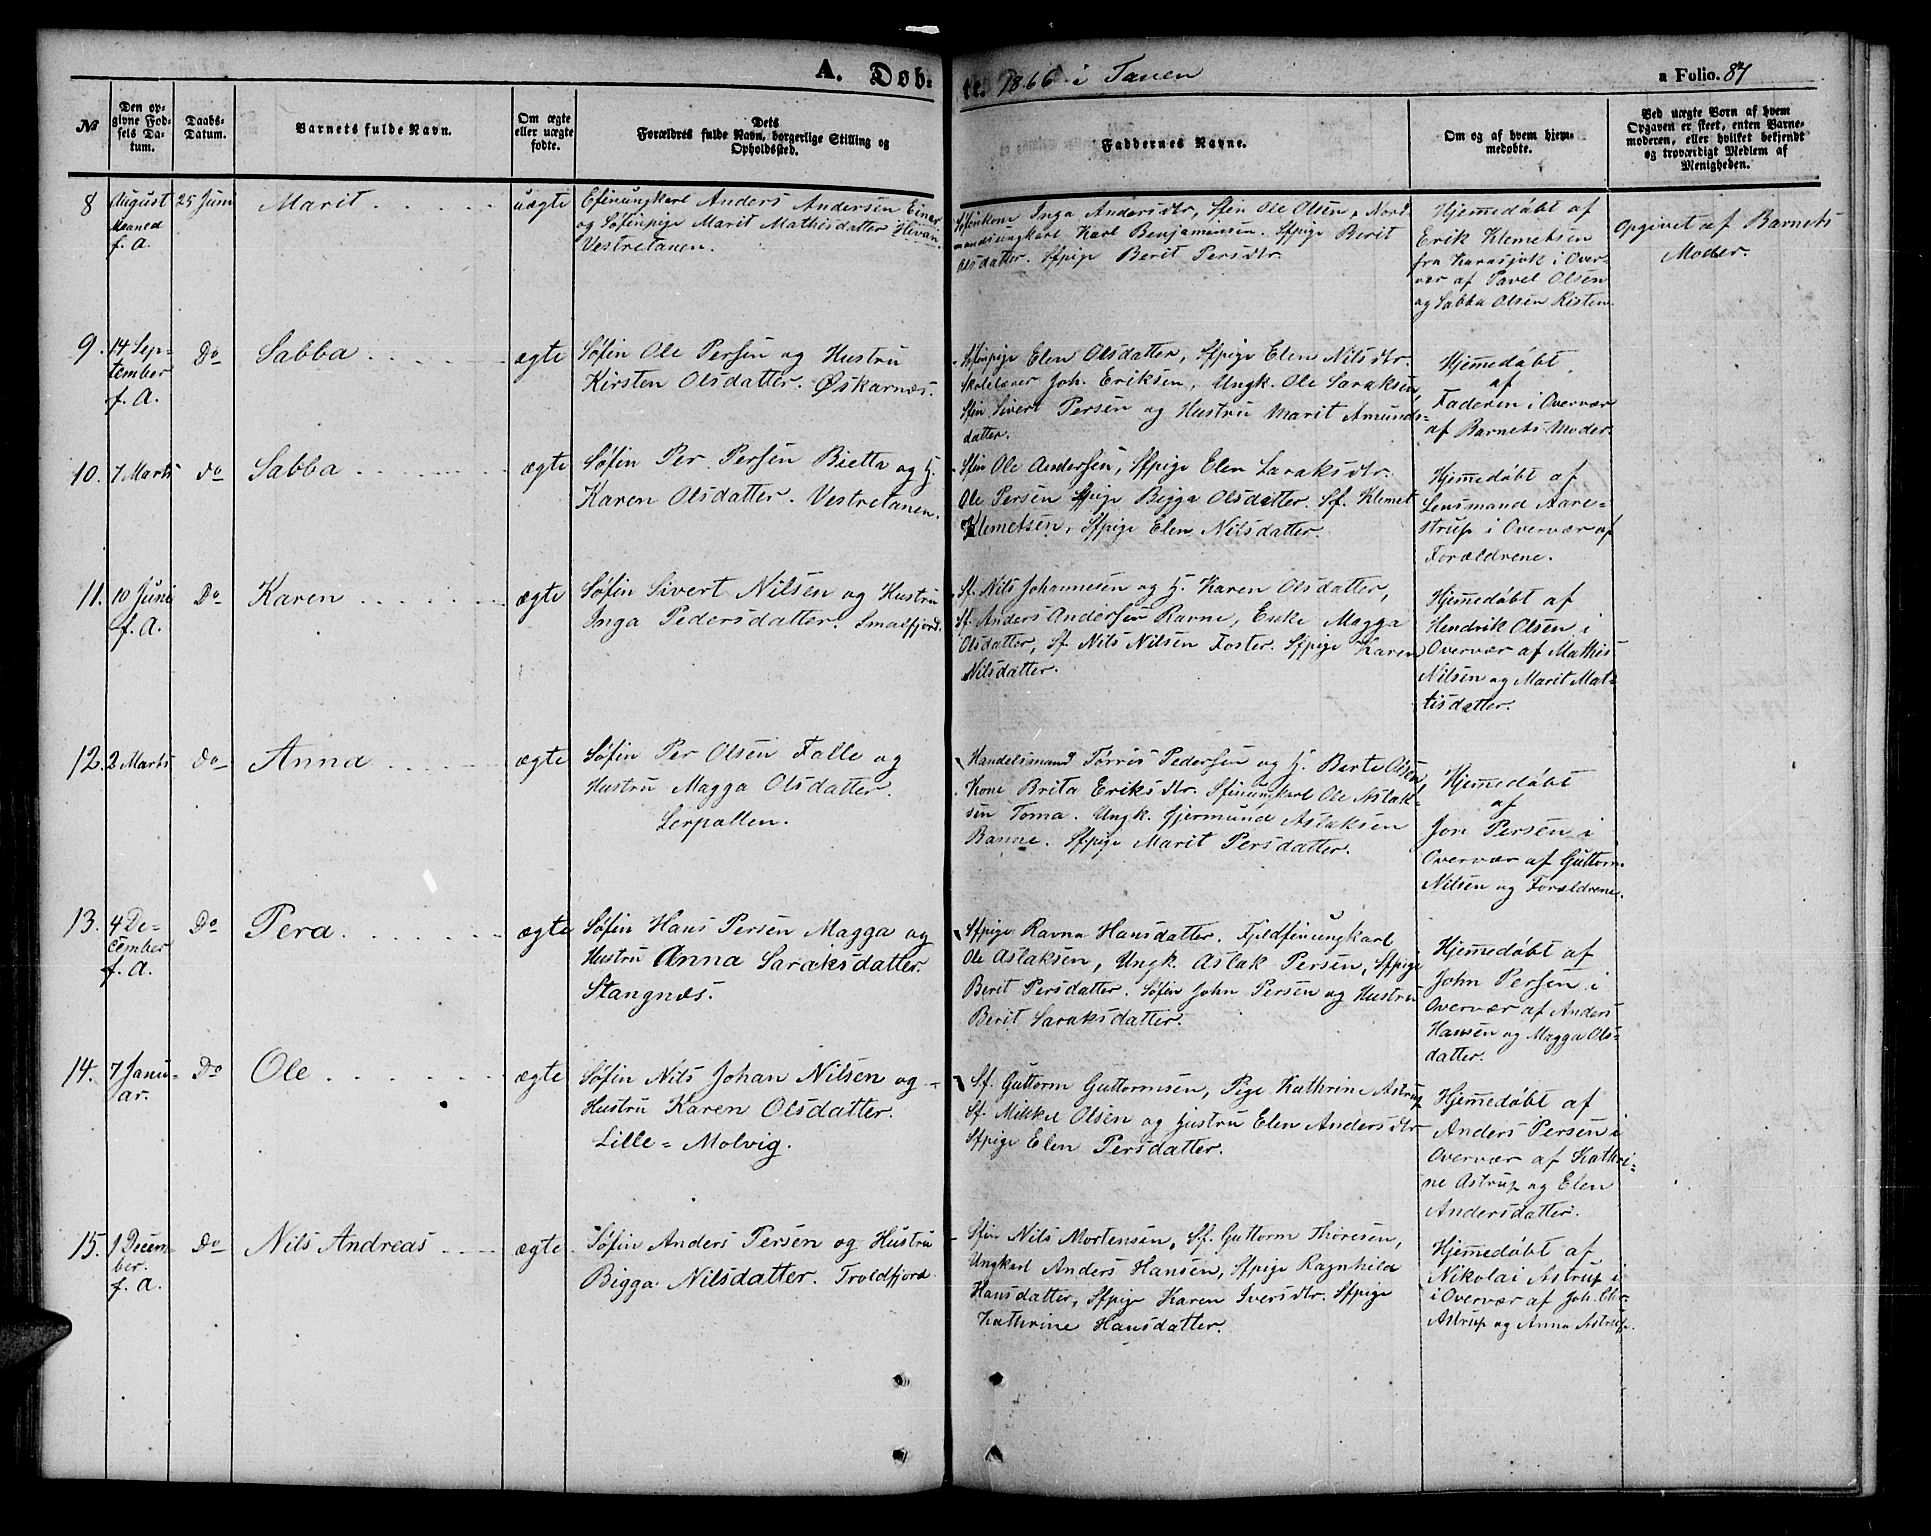 A. Døb-
te. 1866 i Tanen
a Folio. 87
№
Den op-
givne Fød-
sels Da-
tum.
Daabs-
Datum.
Barnets fulde Navn.
Om ægte
eller uægte
fødte.
Dets
Forældres fulde Navn, borgerlige Stilling og
Opholdssted.
Faddernes Navne.
Om og af hvem hjem-
medøbte.
Ved uægte Børn af hvem
Opgaven er skeet, enten Barne-
moderen, eller hvilket bekjendt
og troværdigt Medlem af
Menigheden.
8
August
Maaned
f. A.
25 Juni
Marit
uægte
Anders Andersen
og Søfinpige Marit Mathisdatter
Vestretanen.
Søfinkone Inga Andersdtr, Sfin Ole Olsen, Nord-
mandsungkarl Karl Benjamensen. Sfpige Berit
Olsdatter. Sfpige Berit Persdtr.
Hjemmedøbt af
Erik Klemetsen
fra Karasjok i Over-
vær af Pavel Olsen
og Sabba Olsen Risten
Opgivet af Barnets
Moder.
9.
14 Sep-
tember
f. A.
Do
Sabba
ægte
Søfin Ole Persen og Hustru
Kirsten Olsdatter. Øskarnæs.
Søfinpige Elen Olsdatter, Sfpige Elen Nilsdtr.
Joh. Eriksen, Ungk. Ole Saraksen,
Sfin Sivert Persen og Hustru Marit Amunds-
datter.
Hjemmedøbt
af
Faderen i Overvær
af Barnets Moder.
10.
7 Marts
do
Sabba
ægte
Søfin Per Persen Bietta og H.
Karen Olsdatter. Vestretanen.
Sfin Ole Andersen, Sfpige Elen Saraksdtr.
Ole Persen Sfpige Bigga Olsdatter. Sf. Klemet
Klemetsen, Sfpige Elen Nilsdatter.
Hjemmedøbt af
Lensmand Aare-
strup i Overvær af
Forældrene.
11.
10 Juni
f. A.
Do
Karen
ægte
Søfin Sivert Nilsen og Hustru
Inga Pedersdatter. Smalfjord.
Sf. Nils Johannesen og H. Karen Olsdatter,
Sf. Anders Andersen Ravne, Enke Magga
Olsdatter, Sf Nils Nilsen Foster. Sfpige Karen
Nilsdatter.
Hjemmedøbt af
Hendrik Olsen i
Overvær af Mathis
Nilsen og Marit Mat-
tisdatter.
12.
2 Marts
do
Anna
ægte
Søfin Per Olsen Falle og
Hustru Magga Olsdatter.
Lerpollen.
Handelsmand Tørris Pedersen og H. Berte Olsen
Kone Brita Eriksdtr. Sfinungkarl Ole Aslak-
sen Toma. Ungk. Gjermund Aslaksen
Banne. Sfpige Marit Persdatter.
Hjemmedøbt
af
Jon Persen i
Overvær af Guttorm
Nilsen og Forældrene.
13.
4 De-
cember
f. A.
Do
Pera.
ægte
Søfin Hans Persen Magga og
Hustru Anna Saraksdatter.
Stangnæs.
Sfpige Ravna Hansdatter. Fjeldfinungkarl
Ole Aslaksen, Ungk. Aslak Persen, Sfpige
Berit Persdatter. Søfin John Persen og Hustru
Berit Saraksdatter.
Hjemmedøbt af
John Persen i
Overvær af Anders
Hansen og Magga Ols-
datter.
14.
7 Janu-
ar.
Do
Ole
ægte
Søfin Nils Johan Nilsen og
Hustru Karen Olsdatter.
Lille=Molvig.
Sf. Guttorm Guttormsen, Pige Kathrine Astrup
Sf. Mikkel Olsen og Hustru Elen Andersdtr
Sfpige Elen Persdatter.
Hjemmedøbt af
Anders Persen i
Overvær af Kathri-
ne Astrup og Elen
Andersdatter.
15.
1 Decem-
ber.
f. A.
Do
Nils Andreas
ægte
Søfin Anders Persen og Hustru
Bigga Nilsdatter. Troldfjord
Sfin Nils Mortensen, Sf. Guttorm Thoresen,
Ungkarl Anders Hansen, Sfpige Ragnhild
Hansdatter, Sfpige Karen Iversdtr. Sfpige
Kathrine Hansdatter.
Hjemmedøbt af
Nikolai Astrup i
i Overvær af Joh. Chr.
Astrup og Anna Astrup.